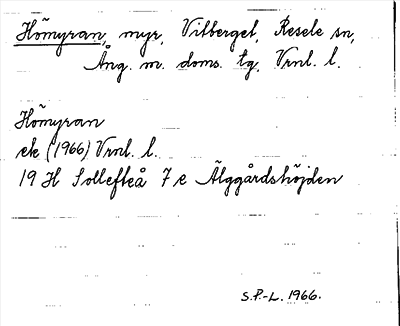 Hömyran, myr, Vitberget, Resele sn,
Ång. m. doms. tg. Vrnl. l.
Hömyran
ek (1966) Vrnl. l.
19 H Sollefteå 7 e Älggårdshöjden
S.P.-L. 1966.